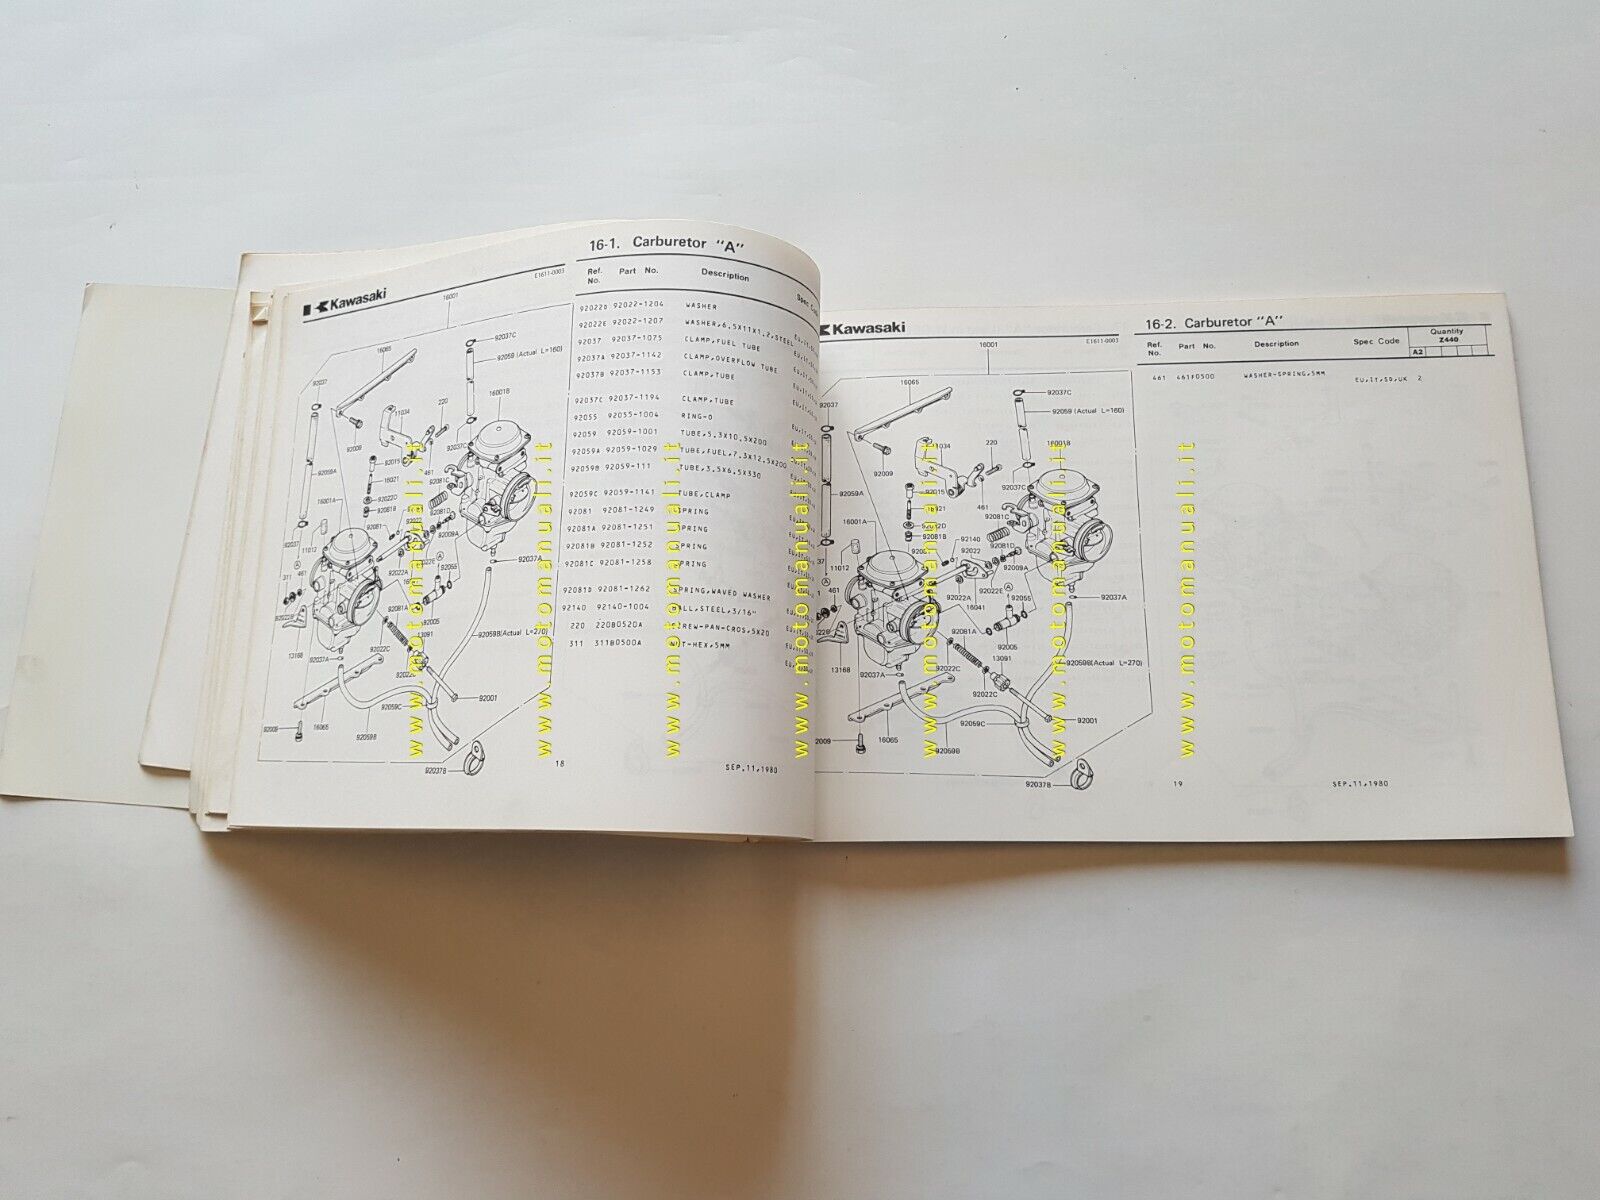 Kawasaki
E1611-0003
16-1. Carburetor "A"
Ref. No. Part No. Description Spec
92022D 92022-1204 WASHER
92022E 92022-1207 WASHER,6.5X11X1.2,STEEL
92037 92037-1075 CLAMP,FUEL TUBE
92037A 92037-1142 CLAMP,OVERFLOW TUBE
92037B 92037-1153 CLAMP,TUBE
92037C 92037-1194 CLAMP,TUBE
92055 92055-1004 RING-O
92059 92059-1001 TUBE,5.3X10.5X200
92059A 92059-1029 TUBE,FUEL,7.3X12.5X200
92059B 92059-111 TUBE,3.5X6.5X330
92059C 92059-1141 TUBE,CLAMP
92081 92081-1249 SPRING
92081A 92081-1251 SPRING
92081B 92081-1252 SPRING
92081C 92081-1258 SPRING
92081D 92081-1262 SPRING,WAVED WASHER
92140 92140-1004 BALL,STEEL,3/16"
220 220B0520A SCREW-PAN-CROS,5X20
311 311B0500A NUT-HEX,5MM
16001
16065
92037C
92059 (Actual L=160)
92037
16001B
220
11034
92009
92037C
92015
461
92059A
16021
92081C
16001A
92022D
92081B
92081
92022
92081D
92009A
92037
11012
A
92037A
92022E
92055
311
461
92022A
92022B
92081A
92005
13091
92059B(Actual L=270)
13168
92037A
92022C
92001
92059C
92009
16065
92059B
92037B
18
SEP.11,1980
Kawasaki
E1611-0003
16-2. Carburetor "A"
Ref. No. Part No. Description Spec Code Quantity Z440
A2
461 461F0500 WASHER-SPRING,5MM EU,IT,SD,UK 2
16001
16065
92037C
92059 (Actual L=160)
92037
16001B
220
92009
92037C
92015
461
92059A
92081C
16001A
92081B
92140
92022
92081D
92009A
11012
A
92037A
92022A
92022E
92055
461
16041
92081A
92005
13091
92059B(Actual L=270)
13168
92037A
92022C
92022C
92001
92059C
16065
92059B
92037B
19
SEP.11,1980
www.motomanuali.it
www.motomanuali.it
www.motomanuali.it
www.motomanuali.it
www.motomanuali.it
www.motomanuali.it
www.motomanuali.it